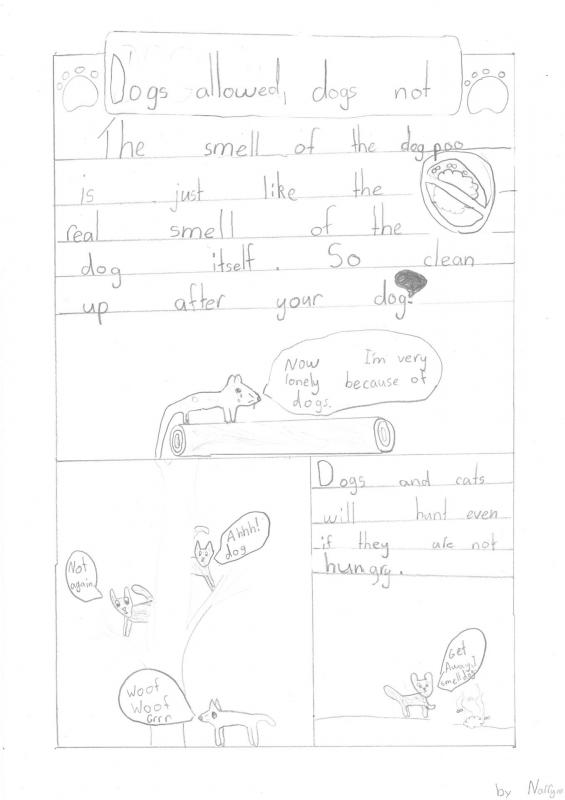 Dogs allowed, dogs not
The smell of the dog poo
is just like the
real smell of the
dog itself. So clean
up after your dog.
Now I'm very
lonely because of
dogs.
Ahhh!
dog
Not
again
Woof
Woof
Grrr
Dogs and cats
will hunt even
if they are not
hungry.
Get
Away!
smell dog
by